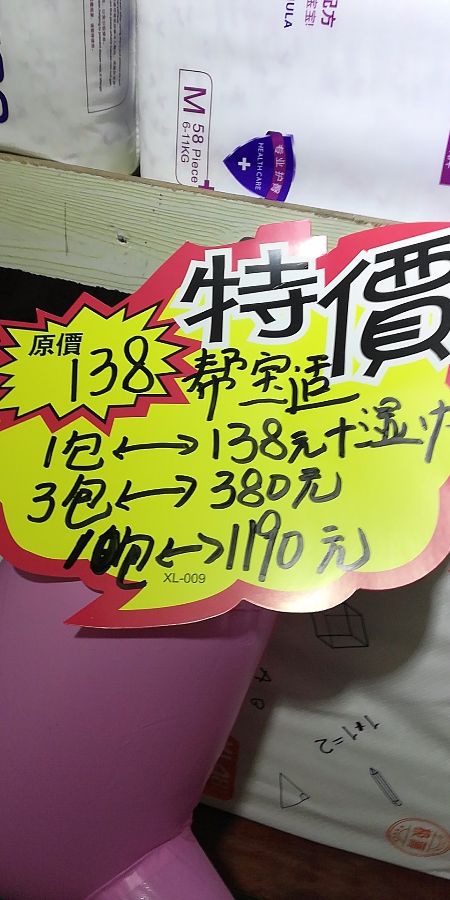 配方
ULA
M
58 Piece
6-11KG
专业护臀
HEALTH CARE
特價
原價
138
帮宝适
1包<->138元+湿巾
3包<->380元
10包<->1190元
XL-009
1+1=2